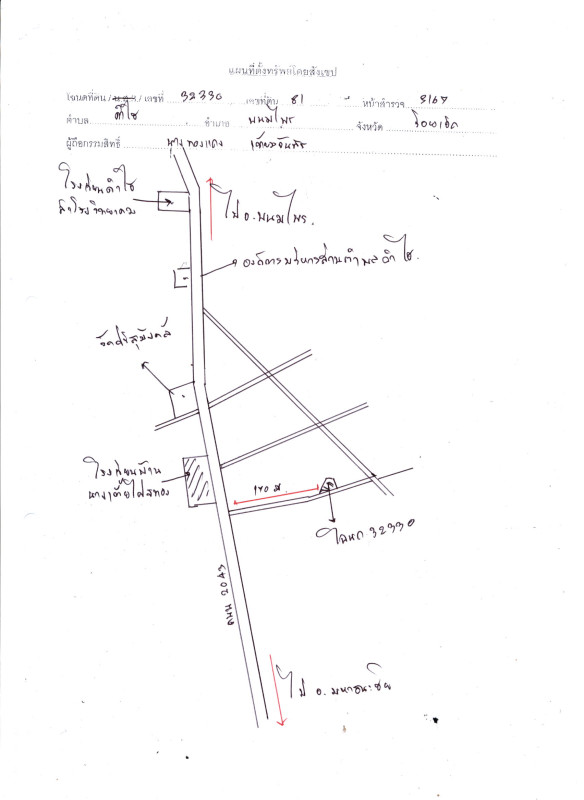 แผนที่ตั้งทรัพย์โดยสังเขป
โฉนดที่ดิน / น.ส.3 / เลขที่ 32330 เลขที่ดิน 81 หน้าสำรวจ 3167
ตำบล คำไฮ อำเภอ พนมไพร จังหวัด ร้อยเอ็ด
ผู้ถือกรรมสิทธิ์ นาง ทองแดง
โรงเรียนคำไฮ
ไป อ. พนมไพร.
องค์การบริหารส่วนตำบลคำไฮ.
วัดศรีสุมังคล์
โรงเรียนบ้าน
170 ม.
โฉนด 32330
ถนน 2043
ไป อ. มหาชนะชัย